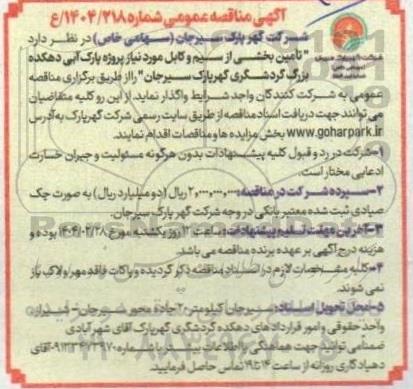 آگهی مناقصه عمومی شماره ۱۴۰۴/۲۱۸/ع
شرکت گهر پارک سیرجان (سهامی خاص) در نظر دارد
"تأمین بخشی از سیم و کابل مورد نیاز پروژه پارک آبی دهکده
بزرگ گردشگری گهرپارک سیرجان" را از طریق برگزاری مناقصه
عمومی به شرکت کنندگان واجد شرایط واگذار نماید. از این رو کلیه متقاضیان
می توانند جهت دریافت اسناد مناقصه از طریق سایت رسمی شرکت گهرپارک به آدرس
www.goharpark.ir بخش مزایده ها و مناقصات اقدام نمایند.
۱-شرکت در رد و قبول کلیه پیشنهادات بدون هرگونه مسئولیت و جبران خسارت
ادعایی مختار است.
۲-سپرده شرکت در مناقصه: ۲.۰۰۰.۰۰۰.۰۰۰ ریال (دو میلیارد ریال) به صورت چک
صیادی ثبت شده معتبر بانکی در وجه شرکت گهر پارک سیرجان.
۳-آخرین مهلت تسلیم پیشنهادات: ساعت ۱۲ روز یکشنبه مورخ ۱۴۰۴/۰۲/۲۸ بوده و
هزینه درج آگهی بر عهده برنده مناقصه می باشد.
۴-کلیه مشخصات لازم در اسناد مناقصه ذکر گردیده و پاکات فاقد مهر و لاک باز
نمی شوند.
۵-محل تحویل اسناد: سیرجان کیلومتر ۲۰ جاده محور سیرجان - شیراز،
واحد حقوقی و امور قراردادهای دهکده گردشگری گهرپارک آقای شهرآبادی
ضمنا می توانند جهت هماهنگی و اطلاعات با شماره آقای
دهیادگاری روزانه از ساعت ۱۴ تا ۱۹ تماس حاصل فرمایید.